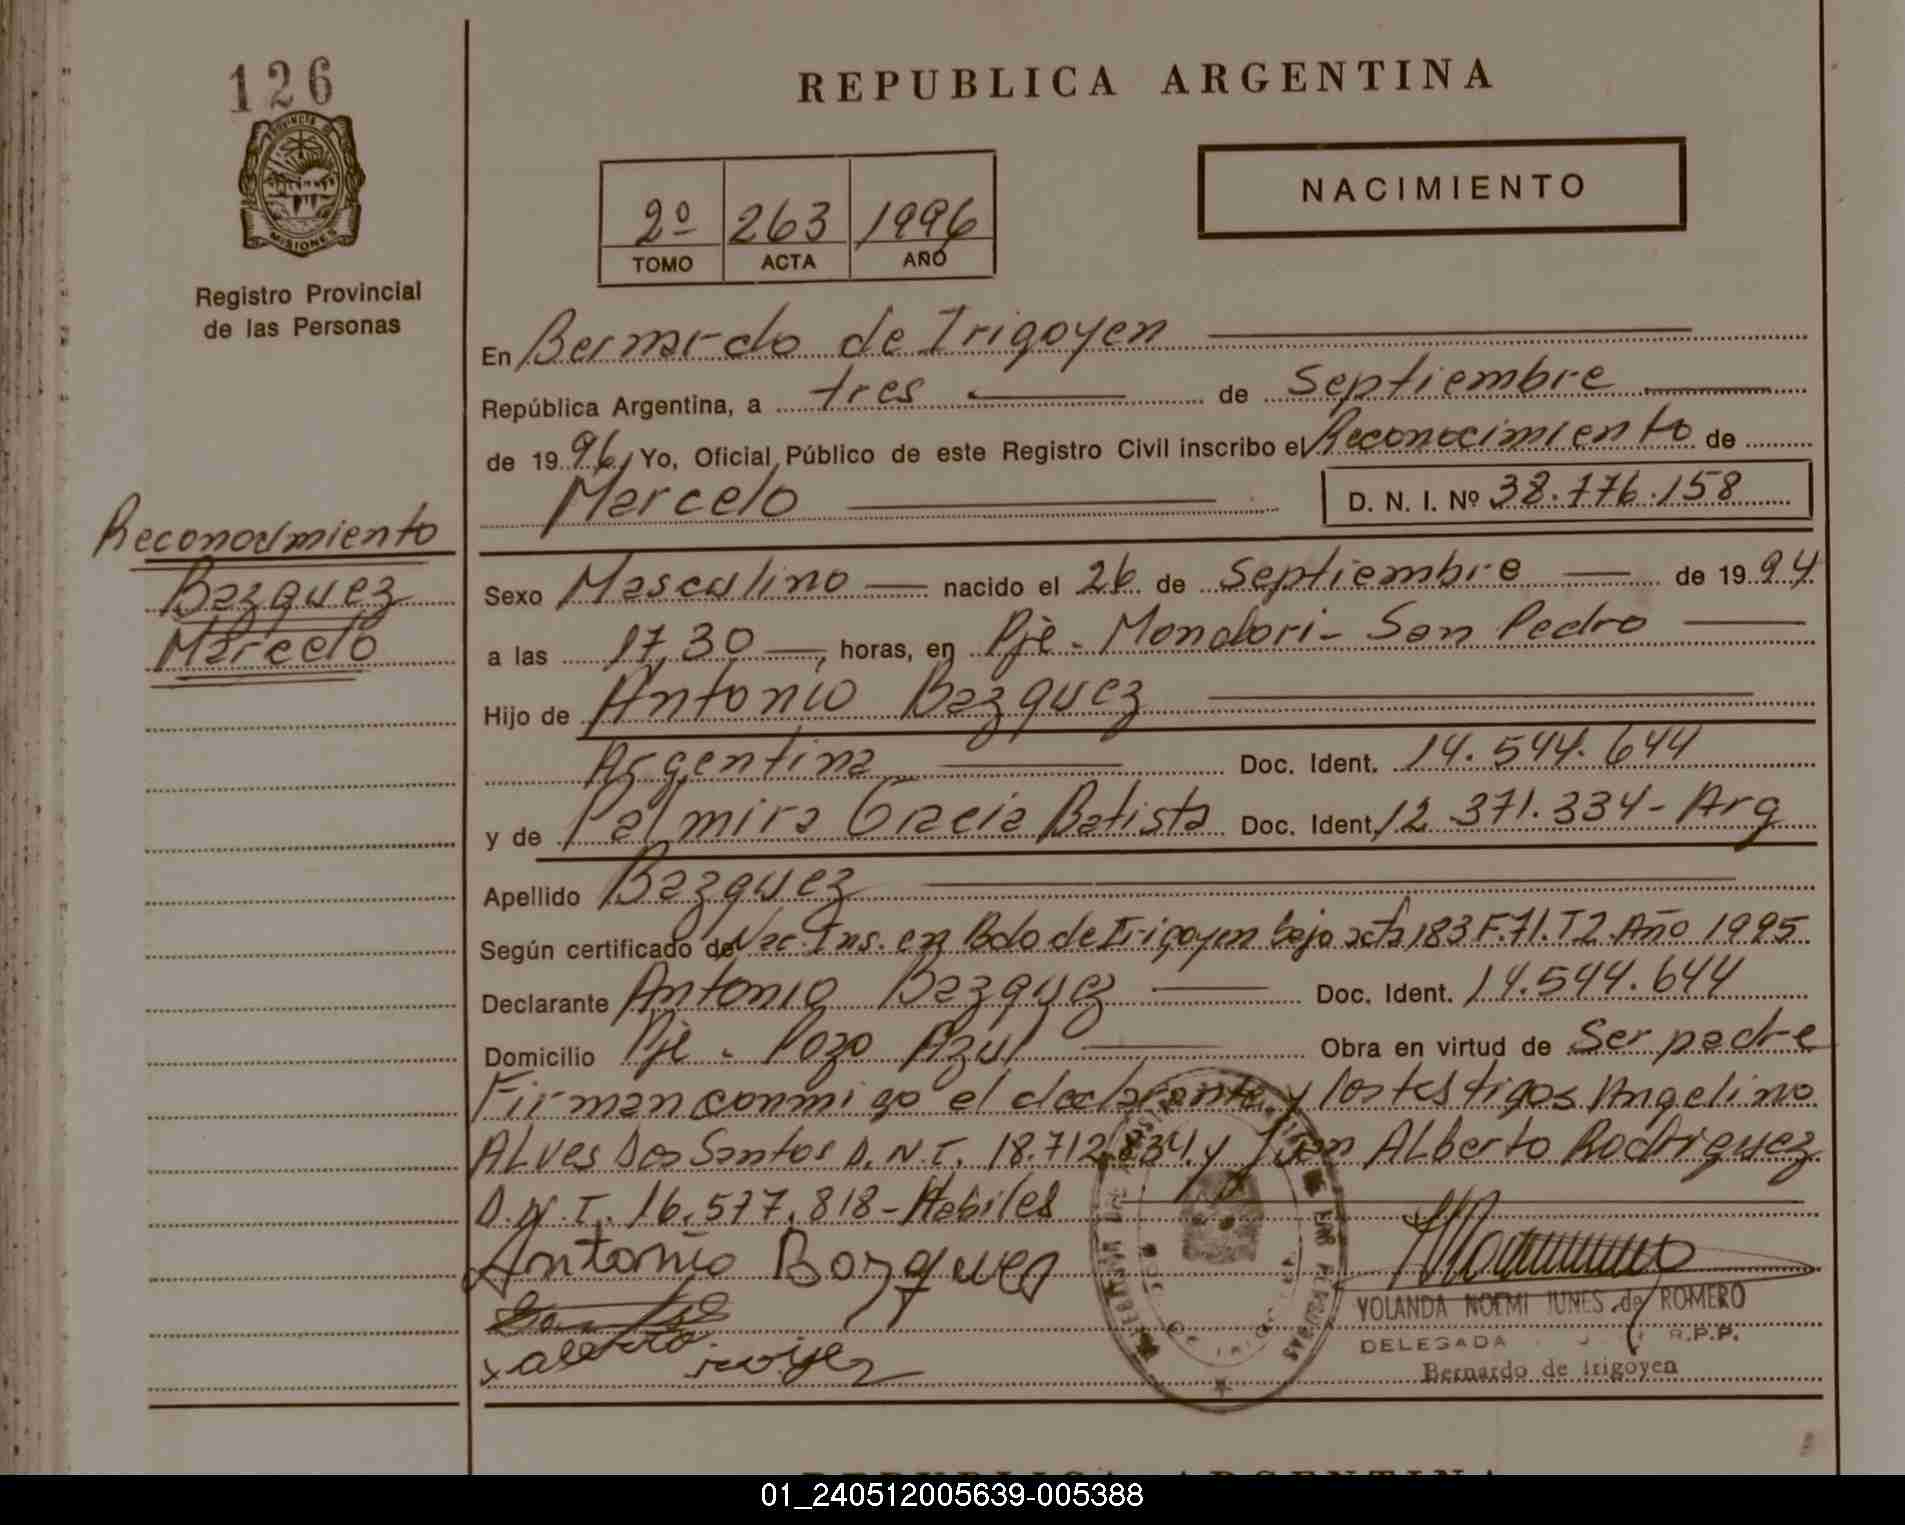 126
PROVINCIA DE
MISIONES
Registro Provincial
de las Personas
REPUBLICA ARGENTINA
NACIMIENTO
2º 263 1996
TOMO ACTA AÑO
En Bernardo de Irigoyen
República Argentina, a tres de Septiembre
de 1996, Yo, Oficial Público de este Registro Civil inscribo el Reconocimiento de
Marcelo D. N. I. Nº 38.776.158
Reconocimiento
Bazquez
Marcelo
Sexo Masculino nacido el 26 de Septiembre de 1994
a las 17,30, horas, en Pje - Mondori - San Pedro
Hijo de Antonio Bazquez
Argentina Doc. Ident. 14.544.644
y de Palmira Gracia Batista Doc. Ident. 12 371.334 - Arg
Apellido Bazquez
Según certificado de Nac. Ins. en Bdo de Irigoyen bajo acta 183 F.71. T2 Año 1995
Declarante Antonio Bazquez Doc. Ident. 14.544.644
Domicilio Pje - Pozo Azul Obra en virtud de Ser padre
Firman conmigo el declarante y los testigos Angelino
ALves Dos Santos D.N.I. 18.712.834 y Juan ALberto Rodriguez
D.N.I. 16.537.818 - Habiles
Antonio Bazquez
YOLANDA NOEMI JUNES de ROMERO
DELEGADA R.P.P.
Bernardo de Irigoyen
REPUBLICA ARGENTINA
01_240512005639-005388